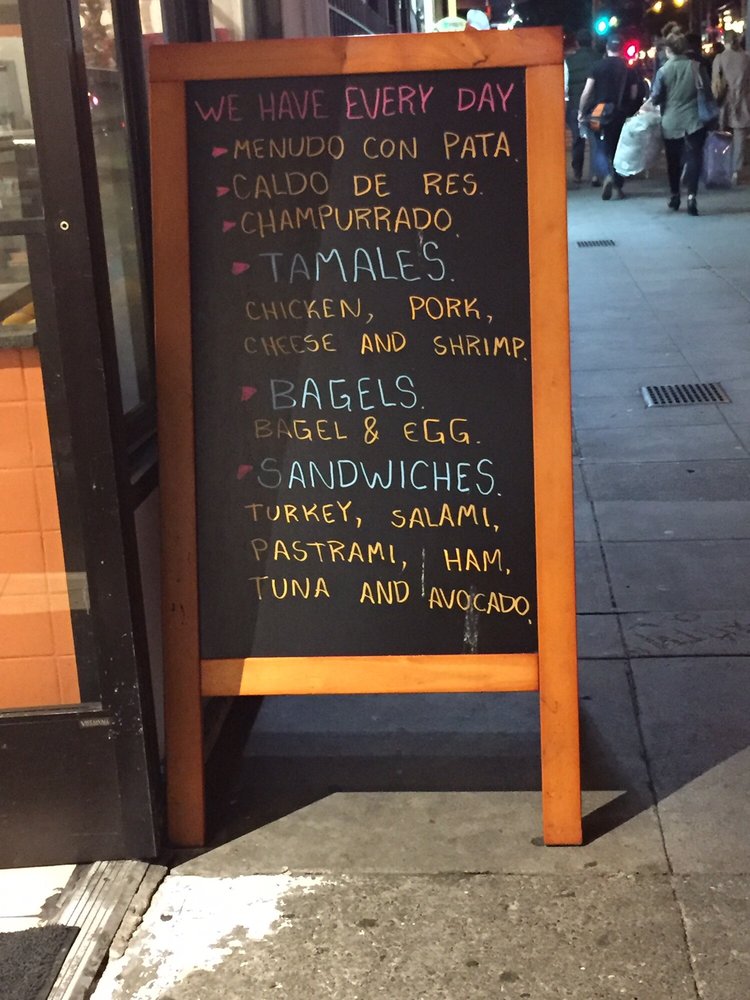 WE HAVE EVERY DAY
MENUDO CON PATA.
CALDO DE RES.
CHAMPURRADO.
TAMALES.
CHICKEN, PORK,
CHEESE AND SHRIMP.
BAGELS.
BAGEL & EGG.
SANDWICHES.
TURKEY, SALAMI,
PASTRAMI, HAM,
TUNA AND AVOCADO.